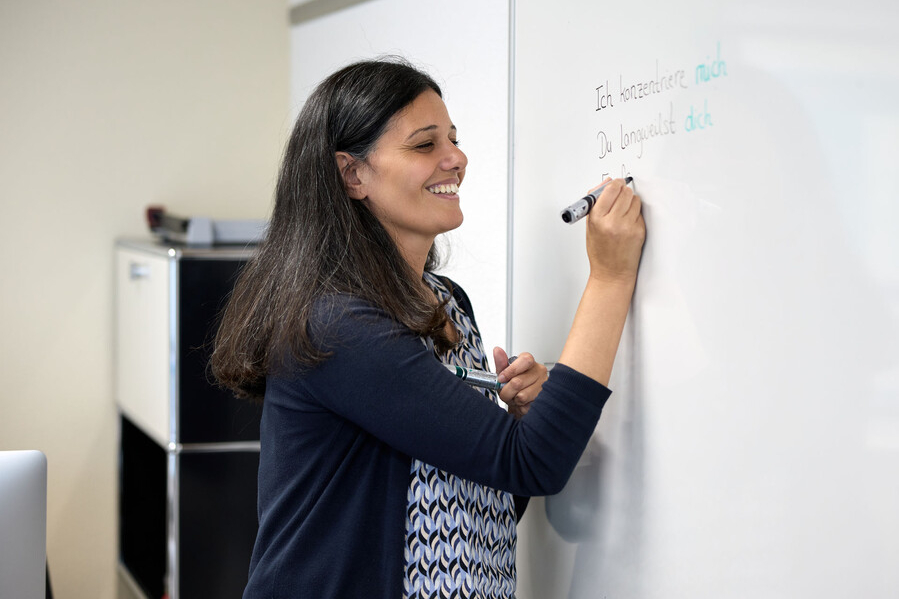 Ich konzentriere mich
Du langweilst dich